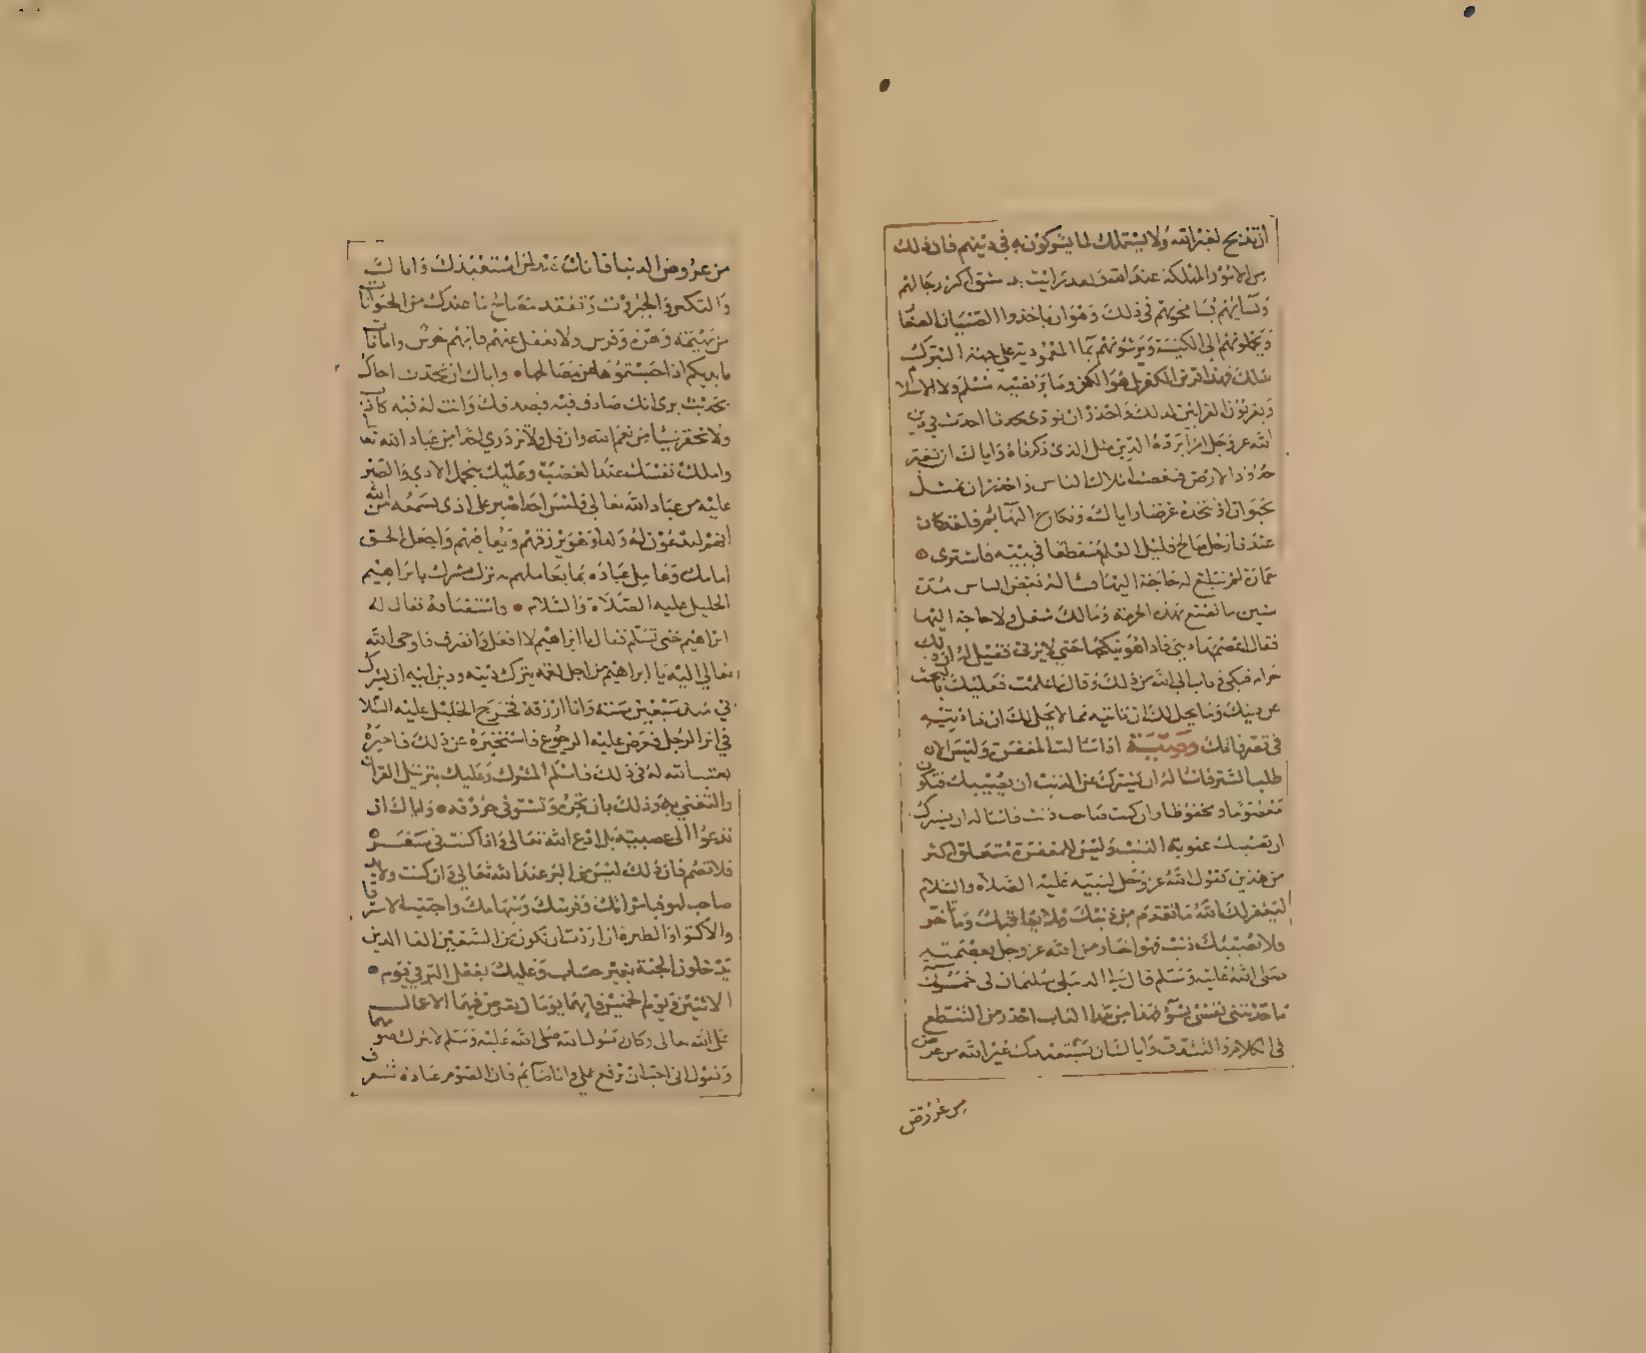 ان تذبح لغير الله ولا يستملك لما يشركونه في دينهم فان ذلك
من الامور المهلكة عند الله ولقد رايت بدمشق اكثر رجالهم
ونسائهم يسامحونهم في ذلك وهو ان ياخذوا الصبيان الصغا
ويحملونهم الى الكنيسة ويرشونهم بماء المعمودية على جهة التبرك
بذلك وهذا قرين الكفر بل هو الكفر وما يرتضيه مسلم ولا الاسلا
ويقربون القرابين لذلك واحذر ان تؤذي محدثا احدث في دين
الله عز وجل امرا يرده الدين مثل الذي ذكرناه واياك ان تغير
حدود الارض فتغصب املاك الناس واحذر ان تمثل
بحيوان او تتخذه غرضا واياك ونكاح البهائم فلقد كان
عندنا رجل صالح قليل العلم منقطعا في بيته فاشترى
حمارة لم نبلغ له حاجة اليها فساله بعض الناس مدة
سنين ما تصنع بهذه الحرمة ومالك شغل ولا حاجة اليها
فقال اعصم بها ديني فاذا هو ينكحها حتى لا يزني فقيل له ان ذلك
حرام فبكى وتاب الى الله من ذلك وقال ما علمت فعليك بالبحث
عن دينك وما يحل لك ان تاتيه مما لا يحل لك ان تاتيه
في تصرفاتك وصية اذا سالت المغفرة وليس الا
طلب الستر فاساله ان يسترك عن الذنب ان يصيبك فتكون
معصوما ومحفوظا وان كنت صاحب ذنب فاساله ان يسترك
ان تصيبك عقوبة الذنب وليس للمغفرة متعلق اكثر
من هذين كقول الله عز وجل لنبيه عليه الصلاة والسلام
ليغفر لك الله ما تقدم من ذنبك فلا يعاقبك وما تاخر
ولا تصيبك ذنب فهو اخبار من الله عز وجل بعصمته
صلى الله عليه وسلم قال لي
ما حدثتني نفسي بسوء احذر من التنطع
في الكلام والتشدق واياك ان تستعبدك غير الله من عرض
من عروض
من عروض الدنيا فانك عبد لمن استعبدك واياك
والتكبر والجبروت وتفقد مصالح ما عندك من الحيوانا
من بهيمة وهرة وفرس ولا تغفل عنهم فانهم خرس وامانا
بايديكم اذا حبستموها عن مصالحها واياك ان تحدث اخاك
بحديث يرى انك صادق فيه فيصدقك وانت له فيه كاذب
ولا تحتقر شيئا من نعم الله وان قل ولا تزدري احدا من عباد الله تعا
واملك نفسك عند الغضب وعليك بتحمل الاذى والصبر
عليه من عباد الله تعالى فليس احد اصبر على اذى يسمعه من الله
انهم ليدعون له ولدا وهو يرزقهم ويعافيهم واجعل الحق
امامك وعامل عباده بما يعاملهم به نزل مشرك بابراهيم
الخليل عليه الصلاة والسلام واستضافه فقال له
ابراهيم حتى تسلم فقال يا ابراهيم لا افعل وانصرف فاوحى الله
تعالى اليه يا ابراهيم من اجل لقمة يترك دينه ودين ابيه انه يشرك
في منذ سبعين سنة وانا ارزقه فخرج الخليل عليه السلا
في اثر الرجل فعرض عليه الرجوع فاستخبره عن ذلك فاخبره
بعتب الله له في ذلك فاسلم المشرك وعليك بترتيل القران
والتغني به وذلك بان تحبره وتستوفي حروفه واياك ان
تدعو الى عصبية بل ادع الله تعالى واذا كنت في سفر
فلا تصم فان ذلك ليس من البر عند الله تعالى وان كنت ولابد
صاحب لهو فبامراتك وفرسك وسهامك واجتنب الاسترقا
والاكتواء والطيرة ان اردت ان تكون من السبعين الفا الذين
يدخلون الجنة بغير حساب وعليك بفعل البر في يوم
الاثنين ويوم الخميس فانهما يومان تعرض فيهما الاعمال
على الله تعالى وكان رسول الله صلى الله عليه وسلم لا يترك صومهما
ويقول اني احب ان يرفع عملي وانا صائم فان الصوم عبادة